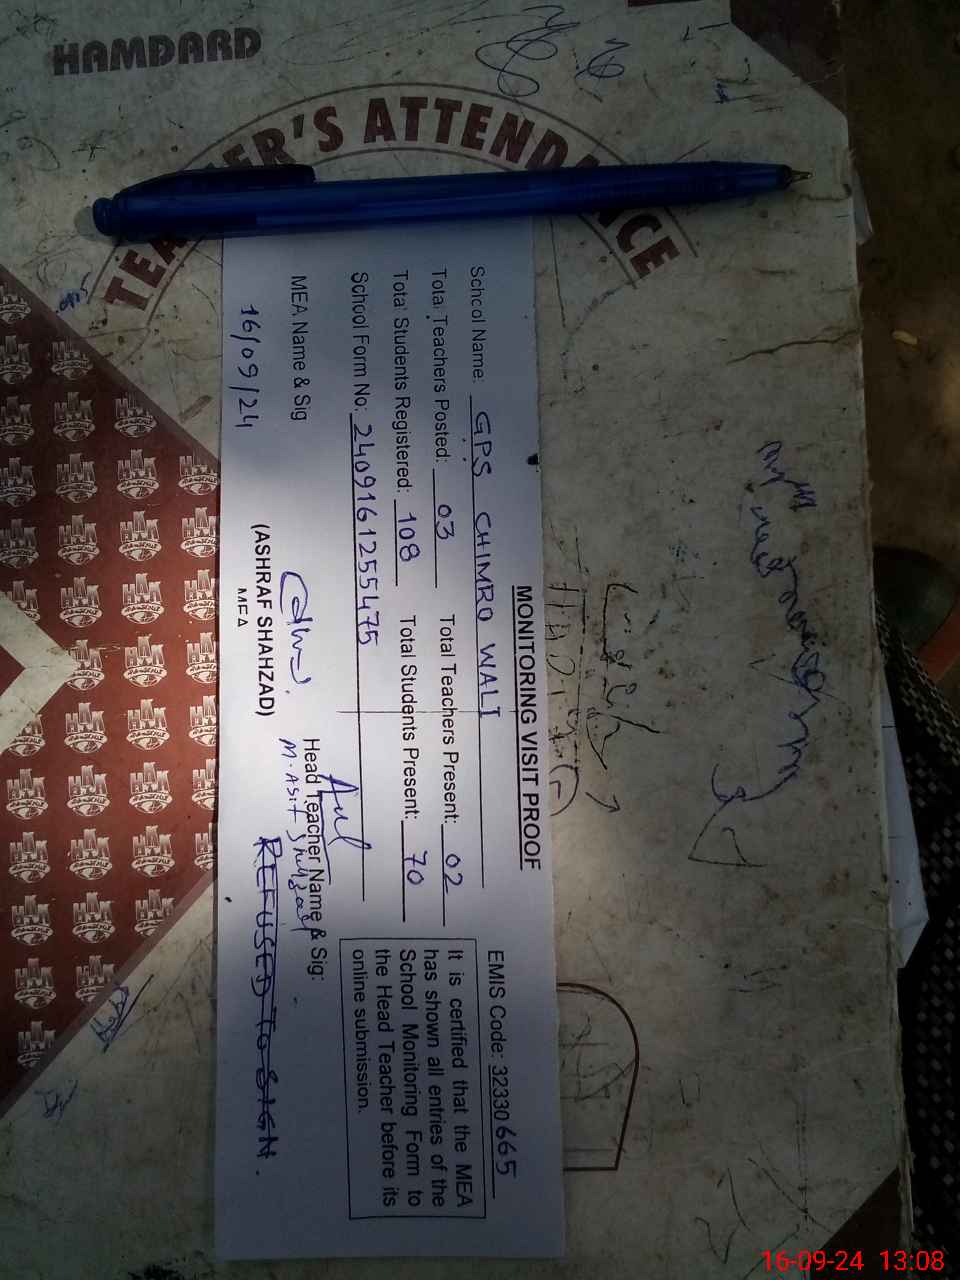 HAMDARD
TEACHER'S ATTENDANCE
MONITORING VISIT PROOF
EMIS Code: 32330665
School Name: GPS CHIMRO WALI
Total Teachers Posted: 03 Total Teachers Present: 02
Total Students Registered: 108 Total Students Present: 70
School Form No: 24091612554​75
It is certified that the MEA
has shown all entries of the
School Monitoring Form to
the Head Teacher before its
online submission.
MEA Name & Sig
Head Teacher Name & Sig:
M. Asif
REFUSED TO SIGN.
16/09/24
(ASHRAF SHAHZAD)
MEA
16-09-24 13:08